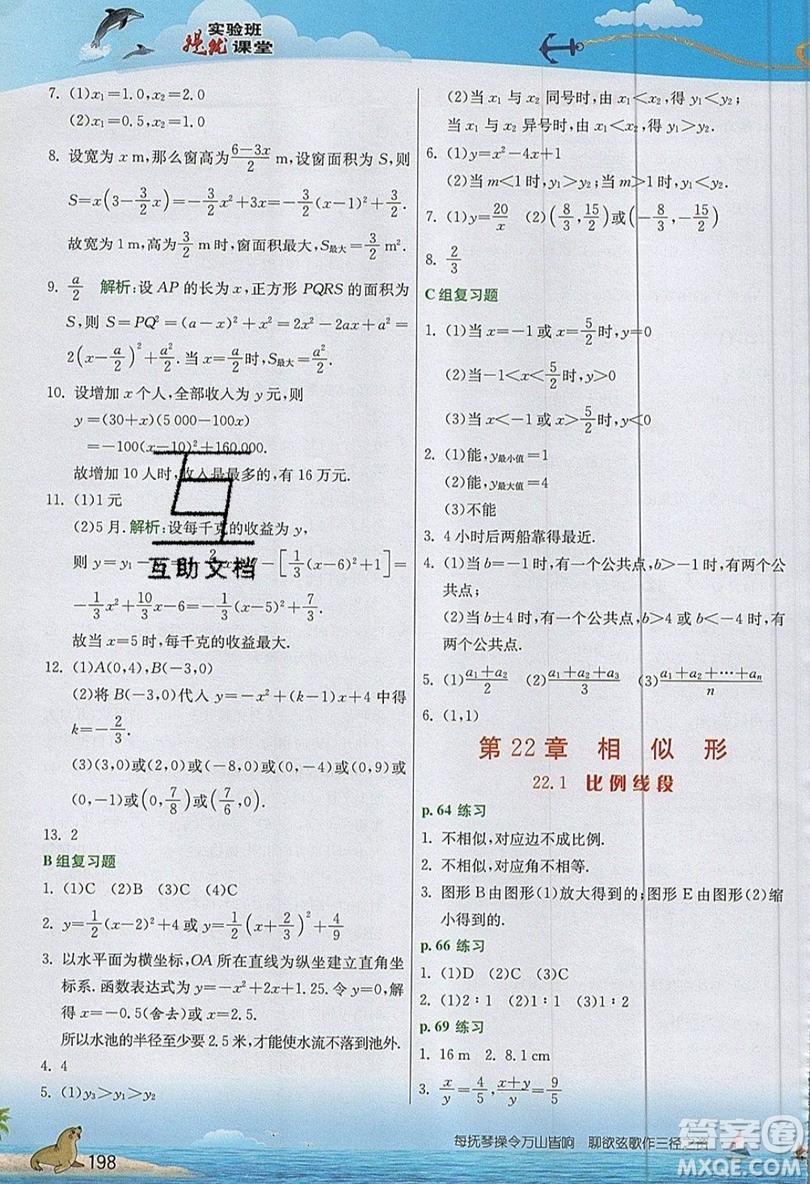 实验班
提优课堂
7. (1)x₁=1.0,x₂=2.0
(2)x₁=0.5,x₂=1.0
8. 设宽为 x m,那么窗高为(6-3x)/2 m,设窗面积为 S,则
S=x(3-3/2x)=-3/2x²+3x=-3/2(x-1)²+3/2.
故宽为 1 m,高为3/2 m时,窗面积最大,S最大=3/2 m².
9. a/2 解析:设 AP 的长为 x,正方形 PQRS 的面积为
S,则 S=PQ²=(a-x)²+x²=2x²-2ax+a²=
2(x-a/2)²+a²/2.当 x=a/2时,S最大=a²/2.
10. 设增加 x 个人,全部收入为 y 元,则
y=(30+x)(5 000-100x)
=-100(x-10)²+160,000.
故增加 10 人时,收入是最多的,有 16 万元.
11. (1)1 元
(2)5 月. 解析:设每千克的收益为 y,
则 y=y₁-
-[1/3(x-6)²+1]=
-1/3x²+10/3x-6=-1/3(x-5)²+7/3.
故当 x=5 时,每千克的收益最大.
12. (1)A(0,4),B(-3,0)
(2)将 B(-3,0)代入 y=-x²+(k-1)x+4 中得
k=-2/3.
(3)(3,0)或(2,0)或(-8,0)或(0,-4)或(0,9)
或(0,7/8)或(7/6,0)
13. 2
B 组复习题
1. (1)C (2)B (3)C (4)C
2. y=1/2(x-2)²+4 或 y=1/2(x+2/3)²+4/9
3. 以水平面为横坐标,OA所在直线为纵坐建立直角坐
标系. 函数表达式为 y=-x²+2x+1.25. 令 y=0,
得 x=-0.5(舍去)或 x=2.5,
所以水池的半径至少要 2.5 米,才能使水流不落到池外.
4. 4
5. (1)y₃>y₁>y₂
(2)当 x₁ 与 x₂ 同号时,由 x₁<x₂,得 y₁<y₂;
当 x₁ 与 x₂ 异号时,由 x₁<x₂,得 y₁>y₂.
6. (1)y=x²-4x+1
(2)当 m<1 时,y₁>y₂;当 m>1 时,y₁<y₂.
7. (1)y=20/x (2)(8/3,15/2)或(-8/3,-15/2)
8. 2/3
C 组复习题
1. (1)当 x=-1 或 x=5/2时,y=0
(2)当-1<x<5/2时,y>0
(3)当 x<-1 或 x>5/2时,y<0
2. (1)能,y最小值=1
(2)能,y最大值=4
(3)不能
3. 4 小时后两船靠得最近.
4. (1)当 b=-1 时,有一个公共点,b>-1 时,有两个公
共点;
(2)当 b±4 时,有一个公共点,b>4 或 b<-4 时,有
两个公共点.
5. (1)(a₁+a₂)/2 (2)(a₁+a₂+a₃)/3 (3)(a₁+a₂+⋯+aₙ)/n
6. (1,1)
第 22 章 相 似 形
22.1 比例线段
p. 64 练习
1. 不相似,对应边不成比例.
2. 不相似,对应角不相等.
3. 图形 B 由图形(1)放大得到的. 图形 E 由图形(2)缩
小得到的.
p. 66 练习
1. (1)D (2)C (3)C
2. (1)2∶1 (2)1∶1 (3)2∶1
p. 69 练习
1. 16 m 2. 8.1 cm
3. x/y=4/5,(x+y)/y=9/5
互助文档
198
每抚琴操令万山皆响 聊欲弦歌作三径之
答案圈
MXQE.COM